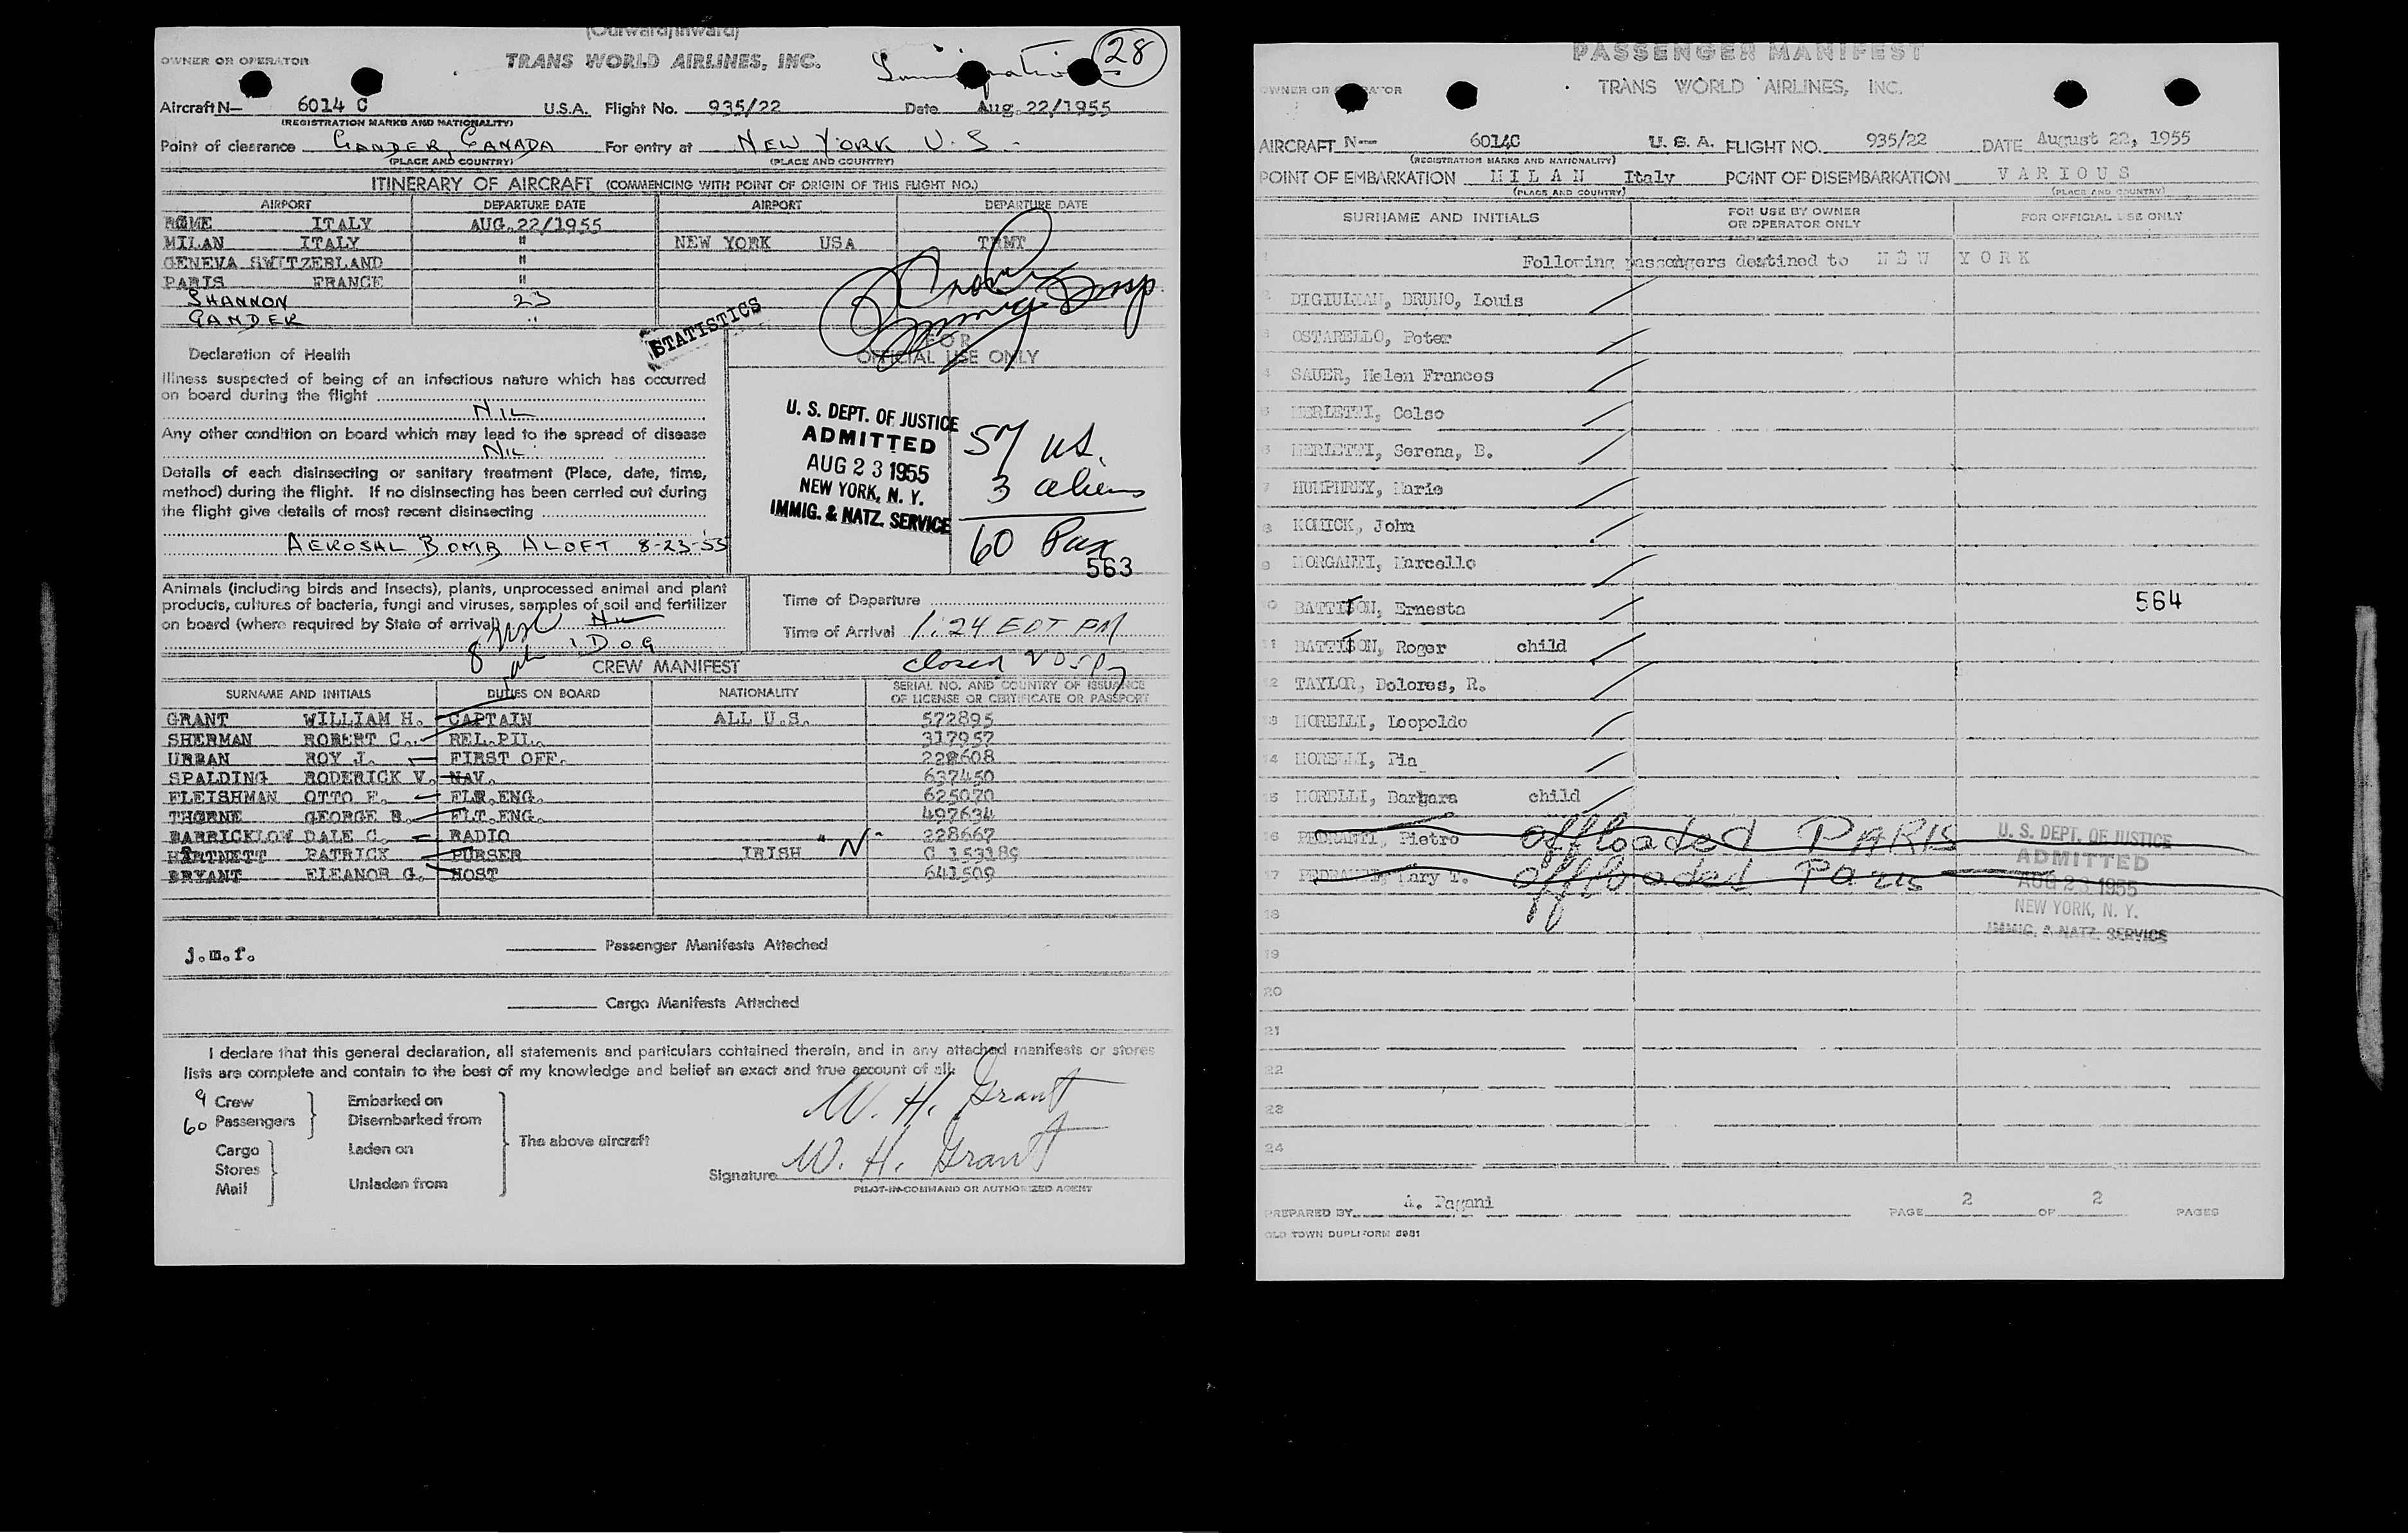 (Outward/Inward)
OWNER OR OPERATOR TRANS WORLD AIRLINES, INC. Immigration 28
Aircraft N— 6014 C U.S.A. Flight No. 935/22 Date Aug. 22/1955
(REGISTRATION MARKS AND NATIONALITY)
Point of clearance GANDER, CANADA For entry at NEW YORK U. S.
(PLACE AND COUNTRY) (PLACE AND COUNTRY)
ITINERARY OF AIRCRAFT (COMMENCING WITH POINT OF ORIGIN OF THIS FLIGHT NO.)
AIRPORT DEPARTURE DATE AIRPORT DEPARTURE DATE
ROME ITALY AUG.22/1955
MILAN ITALY " NEW YORK USA TRMT
GENEVA SWITZERLAND "
PARIS FRANCE "
SHANNON 23
GANDER "
STATISTICS
FOR
OFFICIAL USE ONLY
Declaration of Health
Illness suspected of being of an infectious nature which has occurred
on board during the flight
NIL
Any other condition on board which may lead to the spread of disease
NIL
Details of each disinsecting or sanitary treatment (Place, date, time,
method) during the flight. If no disinsecting has been carried out during
the flight give details of most recent disinsecting
AEROSAL BOMB ALOFT 8-23-55
U. S. DEPT. OF JUSTICE
ADMITTED
AUG 23 1955
NEW YORK, N. Y.
IMMIG. & NATZ. SERVICE
57 US.
3 aliens
60 Pax
563
Animals (including birds and insects), plants, unprocessed animal and plant
products, cultures of bacteria, fungi and viruses, samples of soil and fertilizer
on board (where required by State of arrival) NIL
1 DOG
Time of Departure
Time of Arrival 1:24 EDT PM
CREW MANIFEST closed
SURNAME AND INITIALS DUTIES ON BOARD NATIONALITY SERIAL NO. AND COUNTRY OF ISSUANCE
OF LICENSE OR CERTIFICATE OR PASSPORT
GRANT WILLIAM H. CAPTAIN ALL U.S. 572895
SHERMAN ROBERT C. REL.PIL. 317957
URBAN ROY J. FIRST OFF. 228608
SPALDING RODERICK V. NAV. 637450
FLEISHMAN OTTO F. FLT.ENG. 625070
THORNE GEORGE B. FLT.ENG. 497634
BARRICKLOW DALE C. RADIO 228667
HARTNETT PATRICK PURSER IRISH "N" C 153189
BRYANT ELEANOR G. HOST 641509
j.m.f.
Passenger Manifests Attached
Cargo Manifests Attached
I declare that this general declaration, all statements and particulars contained therein, and in any attached manifests or stores
lists are complete and contain to the best of my knowledge and belief an exact and true account of all:
9 Crew Embarked on
60 Passengers Disembarked from
The above aircraft
Cargo Laden on
Stores
Mail Unladen from
W. H. Grant
Signature W. H. Grant
PILOT-IN-COMMAND OR AUTHORIZED AGENT
PASSENGER MANIFEST
OWNER OR OPERATOR TRANS WORLD AIRLINES, INC.
AIRCRAFT N— 6014C U. S. A. FLIGHT NO. 935/22 DATE August 22, 1955
(REGISTRATION MARKS AND NATIONALITY)
POINT OF EMBARKATION MILAN Italy POINT OF DISEMBARKATION VARIOUS
(PLACE AND COUNTRY) (PLACE AND COUNTRY)
SURNAME AND INITIALS FOR USE BY OWNER OR OPERATOR ONLY FOR OFFICIAL USE ONLY
1 Following passengers destined to NEW YORK
2 DIGIULIAN, BRUNO, Louis
3 OSTARELLO, Peter
4 SAUER, Helen Frances
5 MERLETTI, Celso
6 MERLETTI, Serena, B.
7 HUMPHREY, Marie
8 KOMICK, John
9 MORGANTI, Marcello
10 BATTISON, Ernesta 564
11 BATTISON, Roger child
12 TAYLOR, Dolores, R.
13 MORELLI, Leopoldo
14 MORELLI, Pia
15 MORELLI, Barbara child
16 PEDRANTI, Pietro offloaded PARIS
17 PEDRANTI, Mary T. offloaded Paris
U. S. DEPT. OF JUSTICE
ADMITTED
AUG 23 1955
NEW YORK, N. Y.
IMMIG. & NATZ. SERVICE
18
19
20
21
22
23
24
PREPARED BY A. Pagani PAGE 2 OF 2 PAGES
OLD TOWN DUPLIFORM 5981